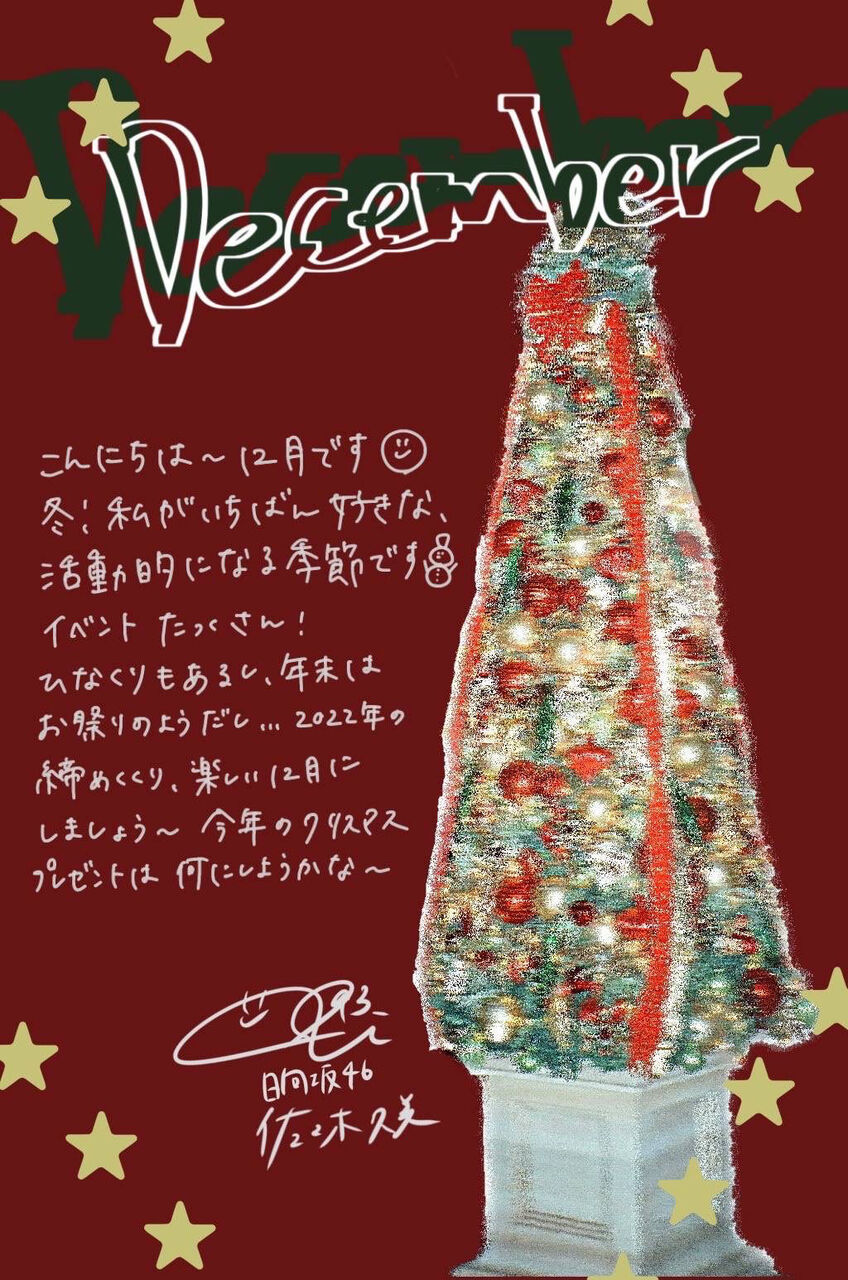 December
こんにちは〜12月です
冬！私がいちばん好きな、
活動的になる季節です
イベントたっくさん！
ひなくりもあるし、年末は
お祭りのようだし…2022年の
締めくくり、楽しい12月に
しましょう〜 今年のクリスマス
プレゼントは何にしようかな〜
日向坂46
佐々木久美